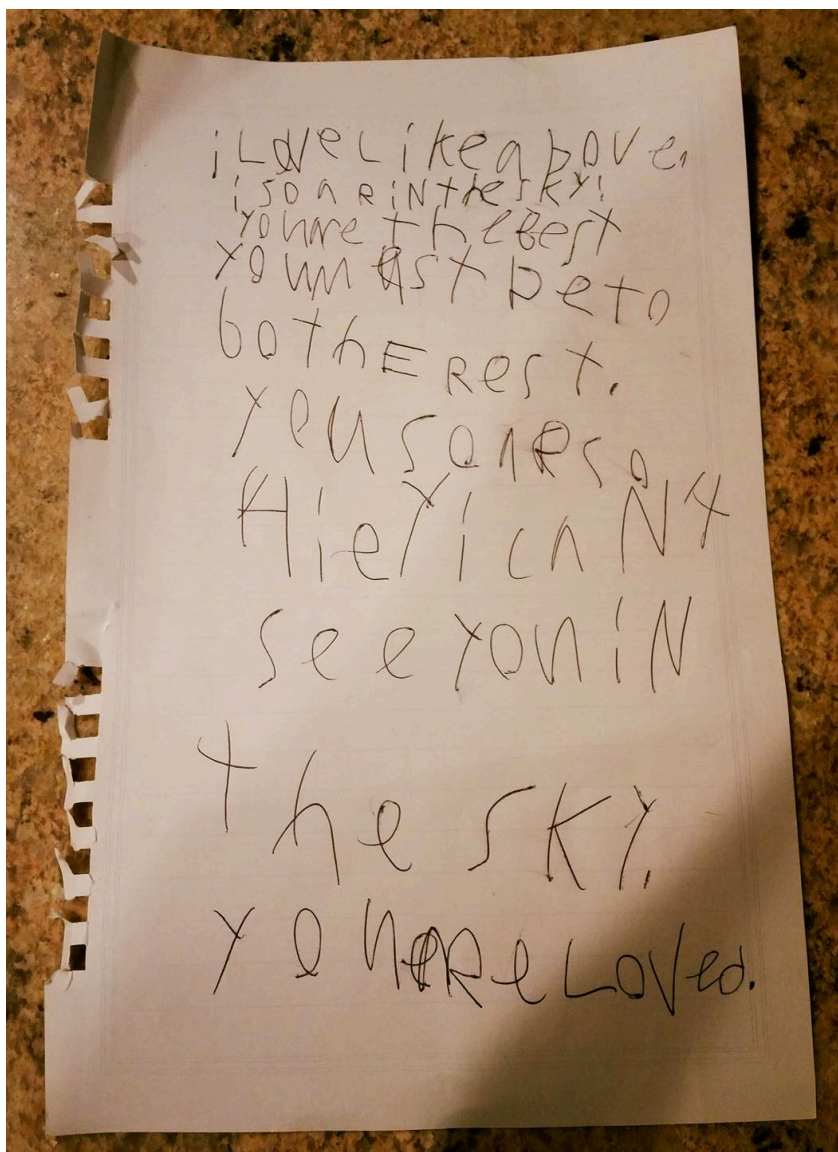 i Love Like a Dove.
i SOAR iN the SKY!
you are the Best
you must be to
bo thE Rest.
you soar so
Hiey i can Nt
see you iN
the SKY.
you aRe Loved.